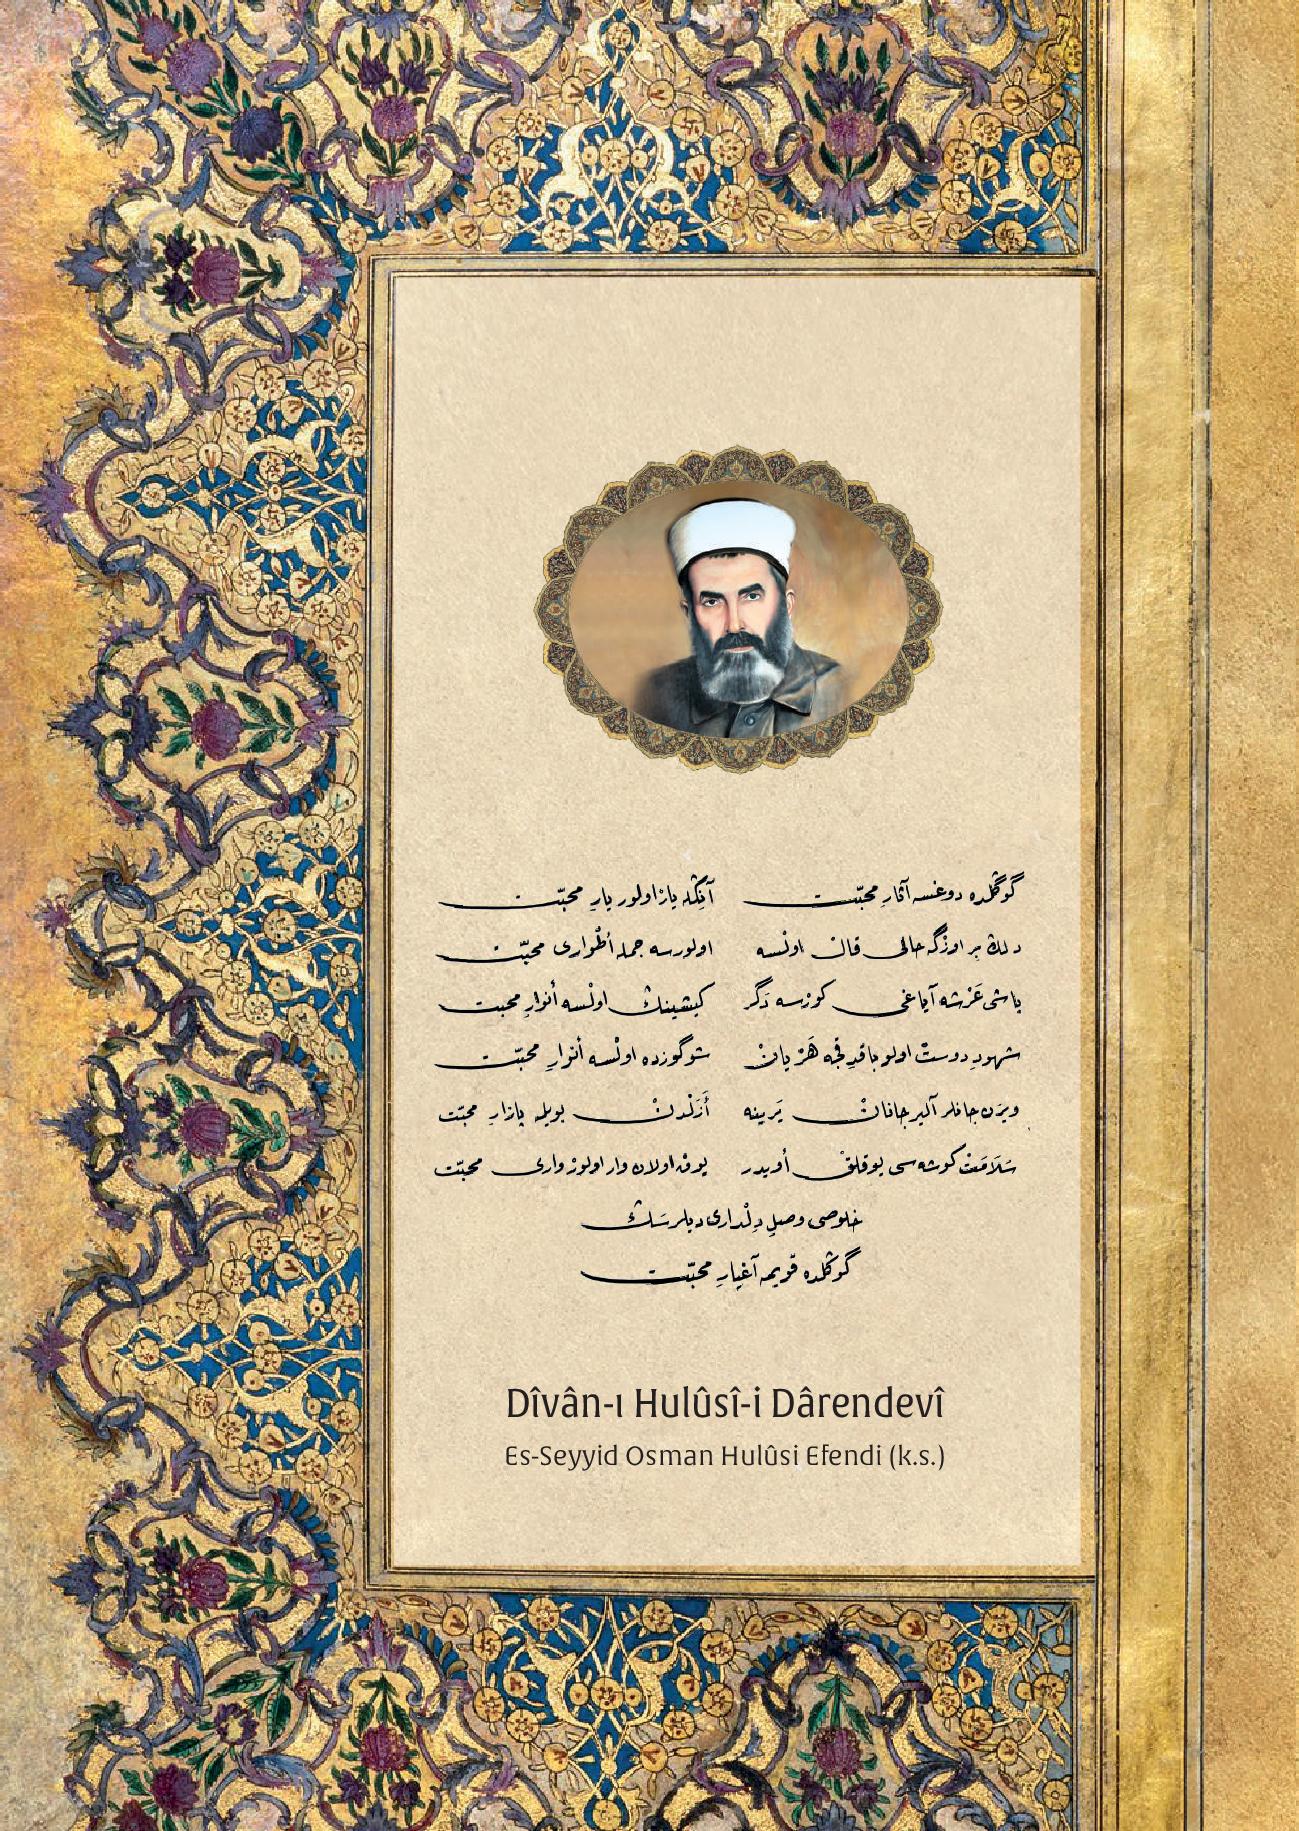 گوڭلده دوغسه آثارِ محبّت آنڭله یاز اولور یارِ محبّت
دلك بر اوزگه حالی قان اولسه اولورسه جمله أطواری محبّت
باشی عَرْشه آیاغی كورسه دَگر كیشینڭ اولسه أنوارِ محبت
شهودِ دوست اولو باقدقجه هَرْ یانْ شو گوزده اولسه أنوارِ محبّت
ویرَن جانلر آلیر جانانْ یَرینه أزَلْدنْ بویله پازارِ محبّت
سَلَامَتْ كوشه سی یوقلقْ أویدر یوق اولان وار اولور واری محبّت
خلوصی وصلِ دِلْداری دیلرسَڭ
گوڭلده قویمه آغیارِ محبّت
Dîvân-ı Hulûsî-i Dârendevî
Es-Seyyid Osman Hulûsi Efendi (k.s.)